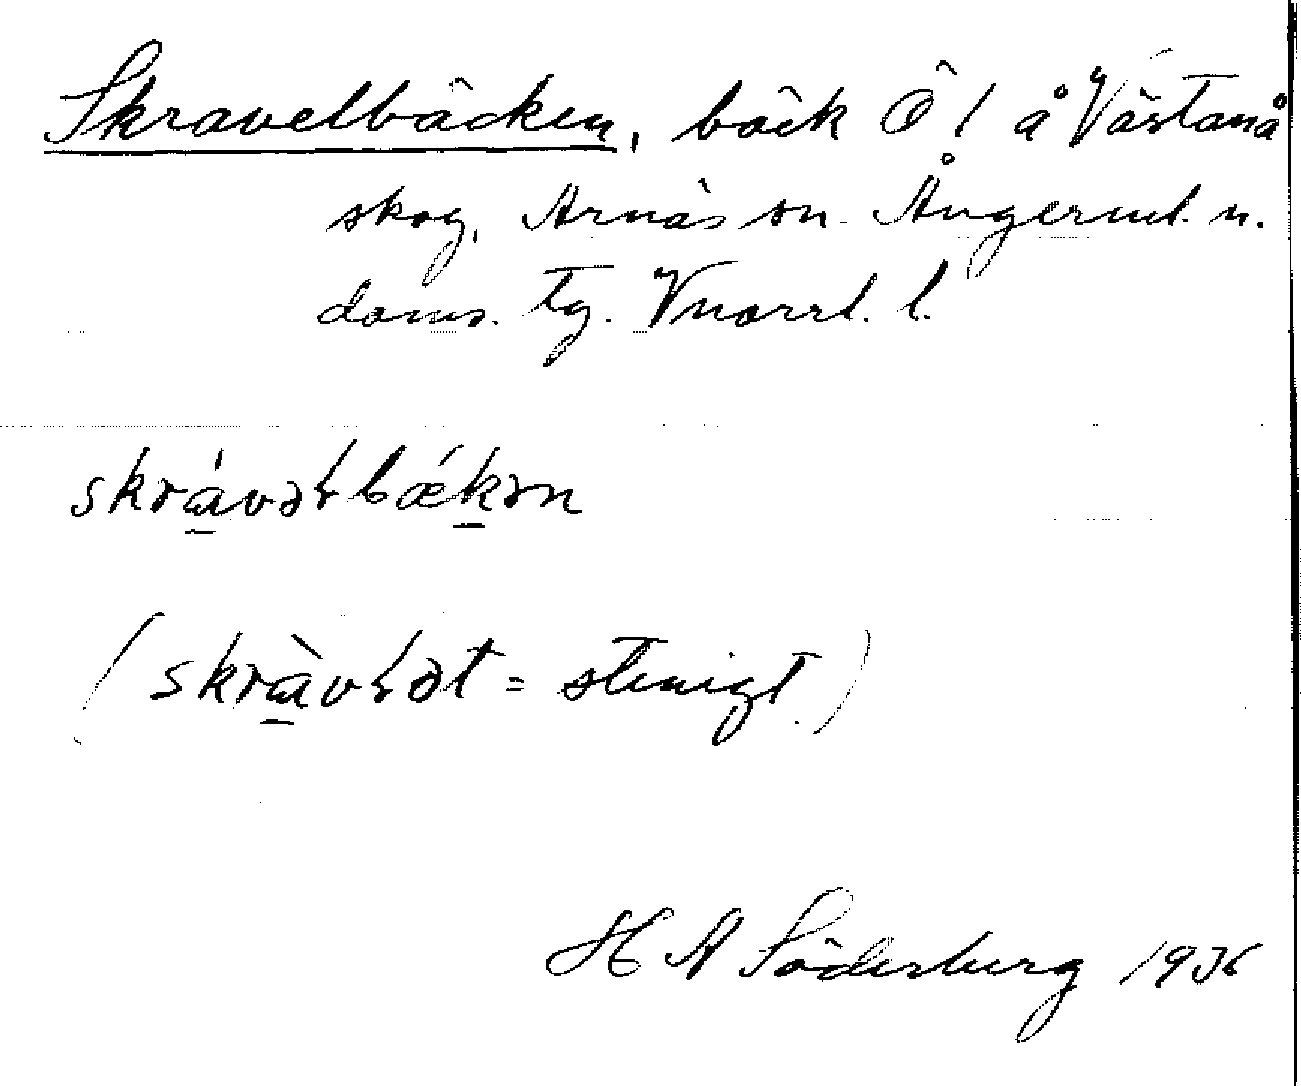 Skravelbäcken, bäck Ö l å Västanå
skog, Arnäs sn. Ångerml. n.
doms. tg. Vnorrl. l.
skrávəɫbǽkən
(skràvɫət = stenigt.)
H A Söderberg 1936